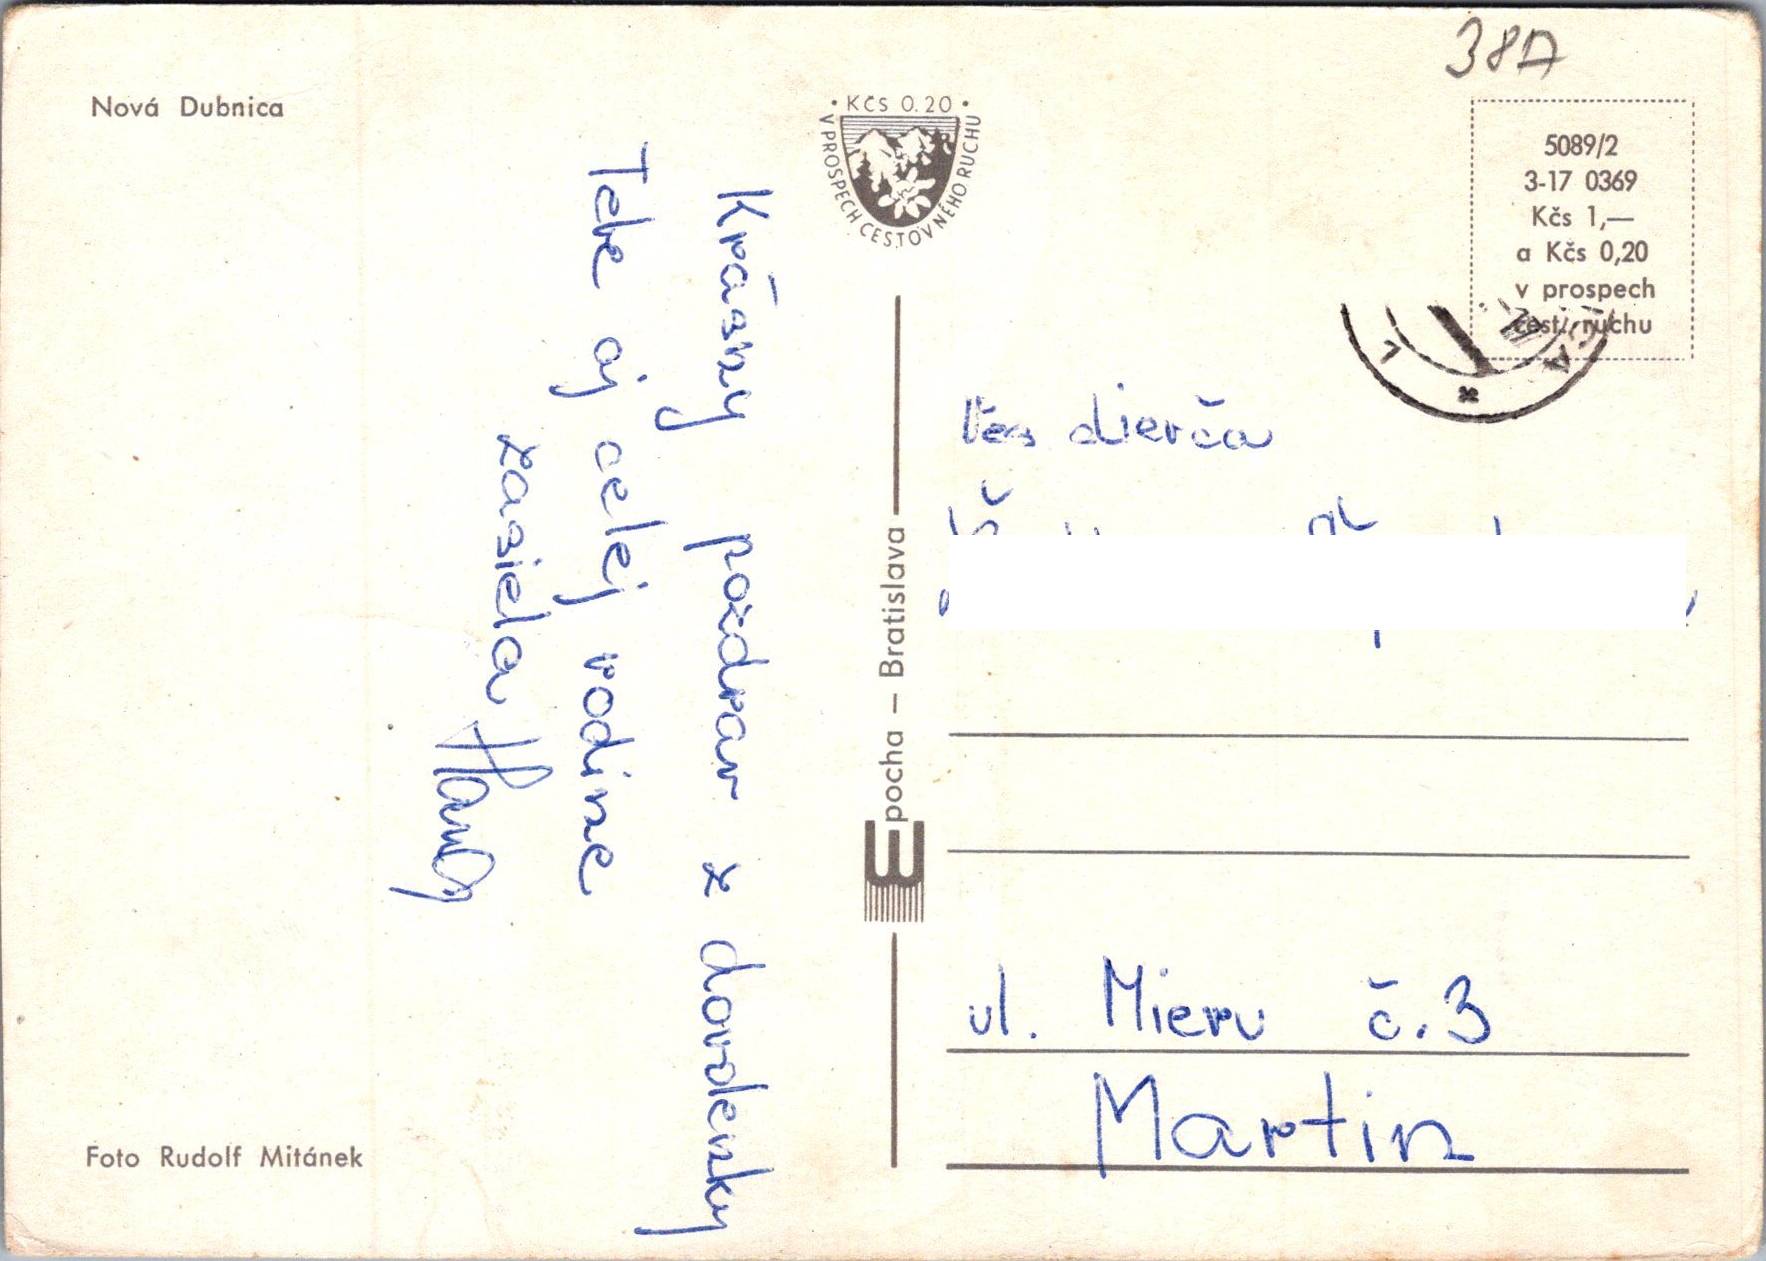 Nová Dubnica
38A
• Kčs 0.20 •
V PROSPECH CESTOVNÉHO RUCHU
5089/2
3-17 0369
Kčs 1,—
a Kčs 0,20
v prospech
cest. ruchu
Krásny pozdrav z dovolenky
Tebe aj celej rodine
zasiela
Epocha – Bratislava
ul. Mieru č.3
Martin
Foto Rudolf Mitánek